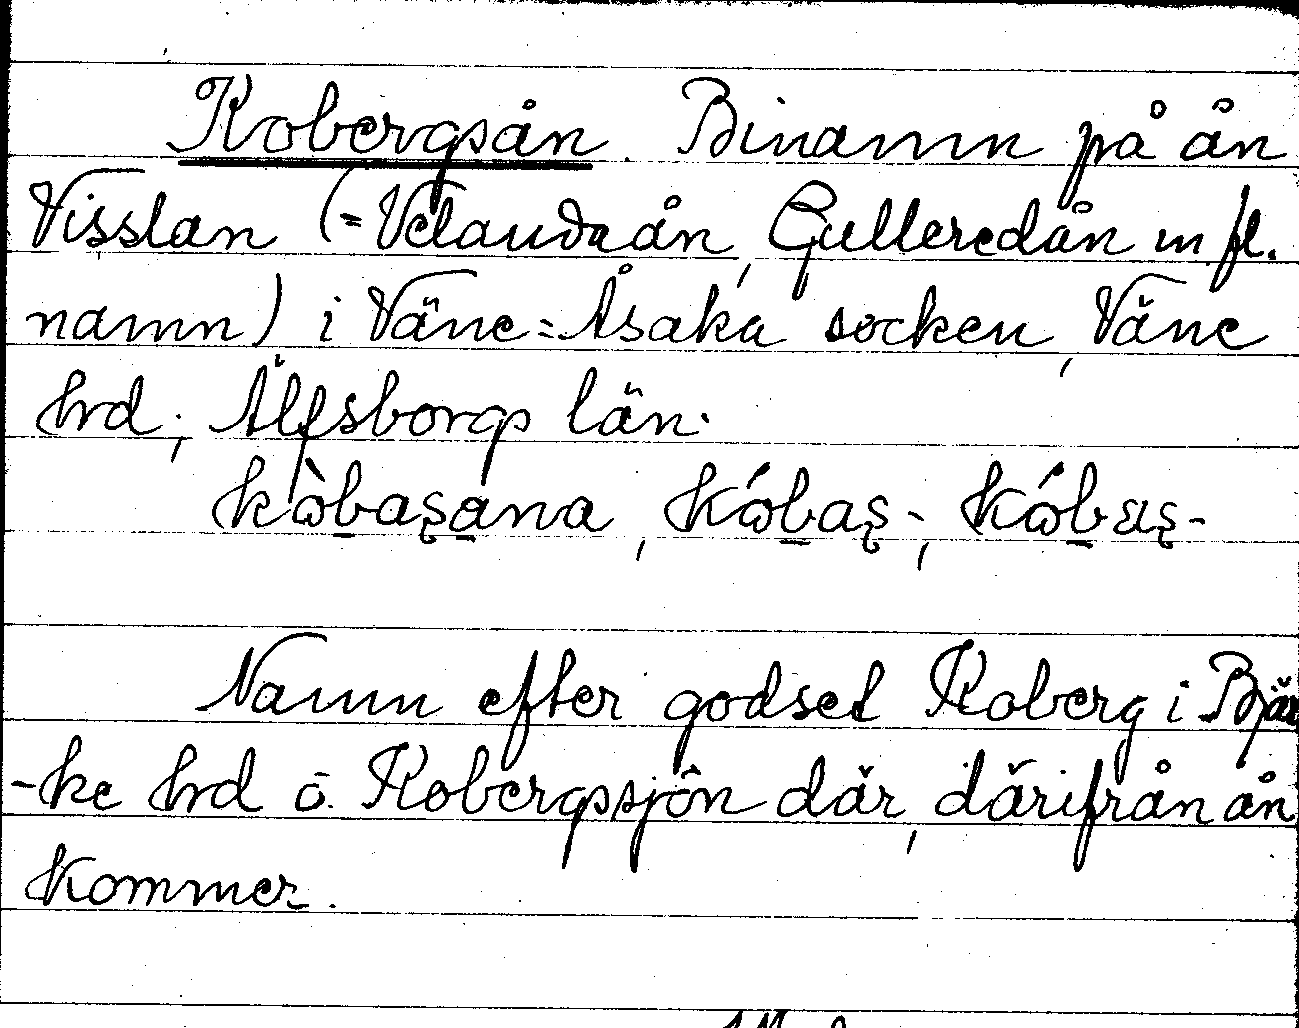 Kobergsån. Binamn på ån
Visslan (=Velandaån, Gulleredån m.fl.
namn) i Väne=Åsaka socken, Väne
hrd; Älfsborgs län.
kòbasana, kóbas-; kóbas-
Namn efter godset Koberg i Bjär
-ke hrd o. Kobergssjön där, därifrån ån
kommer.